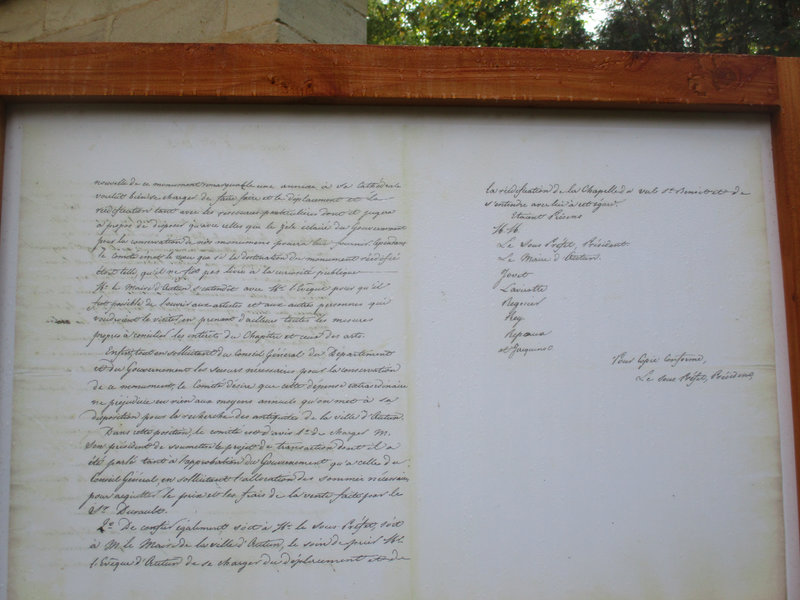 nouvelle de ce monument remarquable une annexe à sa Cathédrale
voulût bien se charger de faire faire et le déplacement et la
réédification tant avec les ressources particulières dont il jugera
à propos de disposer qu'avec celles que le zèle éclairé du Gouvernement
pour la conservation de nos monumens pourra lui fournir. Cependant
le Comité émet le vœu que si la destination du monument réédifié
était telle qu'il ne fût pas livré à la curiosité publique
Mr. le Maire d'Autun s'entendît avec Mr. l'Evêque pour qu'il
fût possible de l'ouvrir aux artistes et aux autres personnes qui
voudraient le visiter en prenant d'ailleurs toutes les mesures
propres à concilier les intérêts du Chapitre et ceux des arts.
Enfin, tout en sollicitant du Conseil Général du Département
et du Gouvernement les secours nécessaires pour la conservation
de ce monument, le Comité désire que cette dépense extraordinaire
ne préjudicie en rien aux moyens annuels qu'on met à sa
disposition pour la recherche des antiquités de la ville d'Autun.
Dans cette position, le comité est d'avis 1o. de charger M.
son président de soumettre le projet de transaction dont il a
été parlé tant à l'approbation du Gouvernement qu'à celle du
Conseil Général, en sollicitant l'allocation des sommes nécessaires
pour acquitter le prix et les frais de la vente faite par le
Sr. Durault.
2o. De confier également soit à Mr. le Sous Préfet, soit
à M. le Maire de la ville d'Autun, le soin de prier Mr.
l'Evêque d'Autun de se charger du déplacement et de
la réédification de la Chapelle du val St Benoit et de
s'entendre avec lui à cet égard.
Etaient Présens
MM
Le Sous Préfet, Président
Le Maire d'Autun.
Jovet
Lavirotte
Regnier
Rey
Repoux
et Jacquinot
Pour Copie Conforme,
Le Sous Préfet, Président,